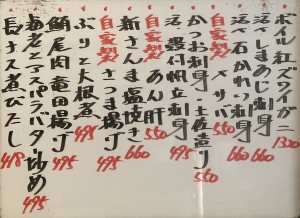 ボイル紅ズワイガニ 1300
活〆しまあじ刺身 660
活〆石かれい刺身 660
自家製 〆サバ 550
かつお刺身・土佐造り 550
活〆殻付帆立刺身 495
自家製 あん肝 550
新さんま塩焼き 660
自家製 さつま揚げ 495
ぶりと大根煮 495
鮪尾肉竜田揚げ 495
海老とアスパラバター炒め 495
長ナス煮びたし 418